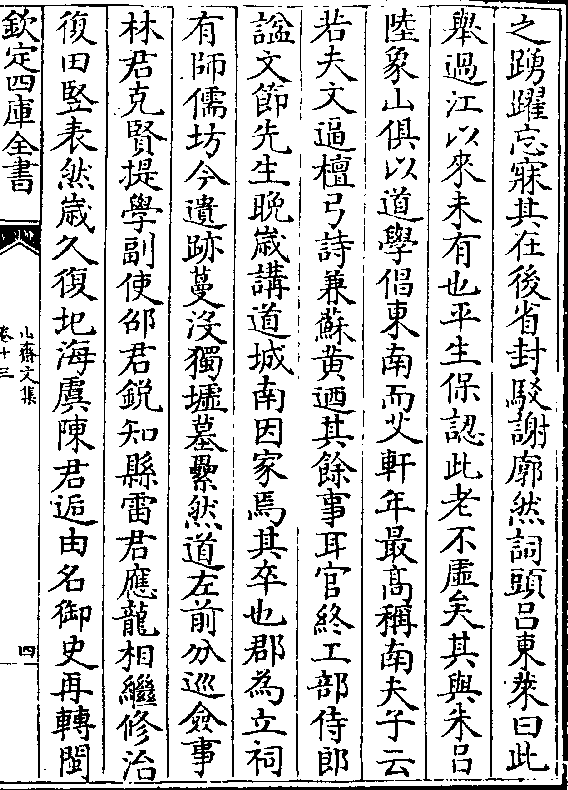 之踴躍忘寐其在後省封駁謝廓然詞頭吕東萊曰此
舉過江以來未有也平生保認此老不虛矣其與朱吕
陸象山俱以道學倡東南而艾軒年最髙稱南夫子云
若夫文逼檀弓詩兼蘇黄迺其餘事耳官終工部侍郎
諡文節先生晩歲講道城南因家焉其卒也郡為立祠
有師儒坊今遺跡蔓沒獨墟墓纍然道左前分巡僉事
林君克賢提學副使邰君鋭知縣雷君應龍相繼修治
復田竪表然歲久復圮海虞陳君逅由名御史再轉閩
欽定四庫全書
山齋文集
卷十三
四